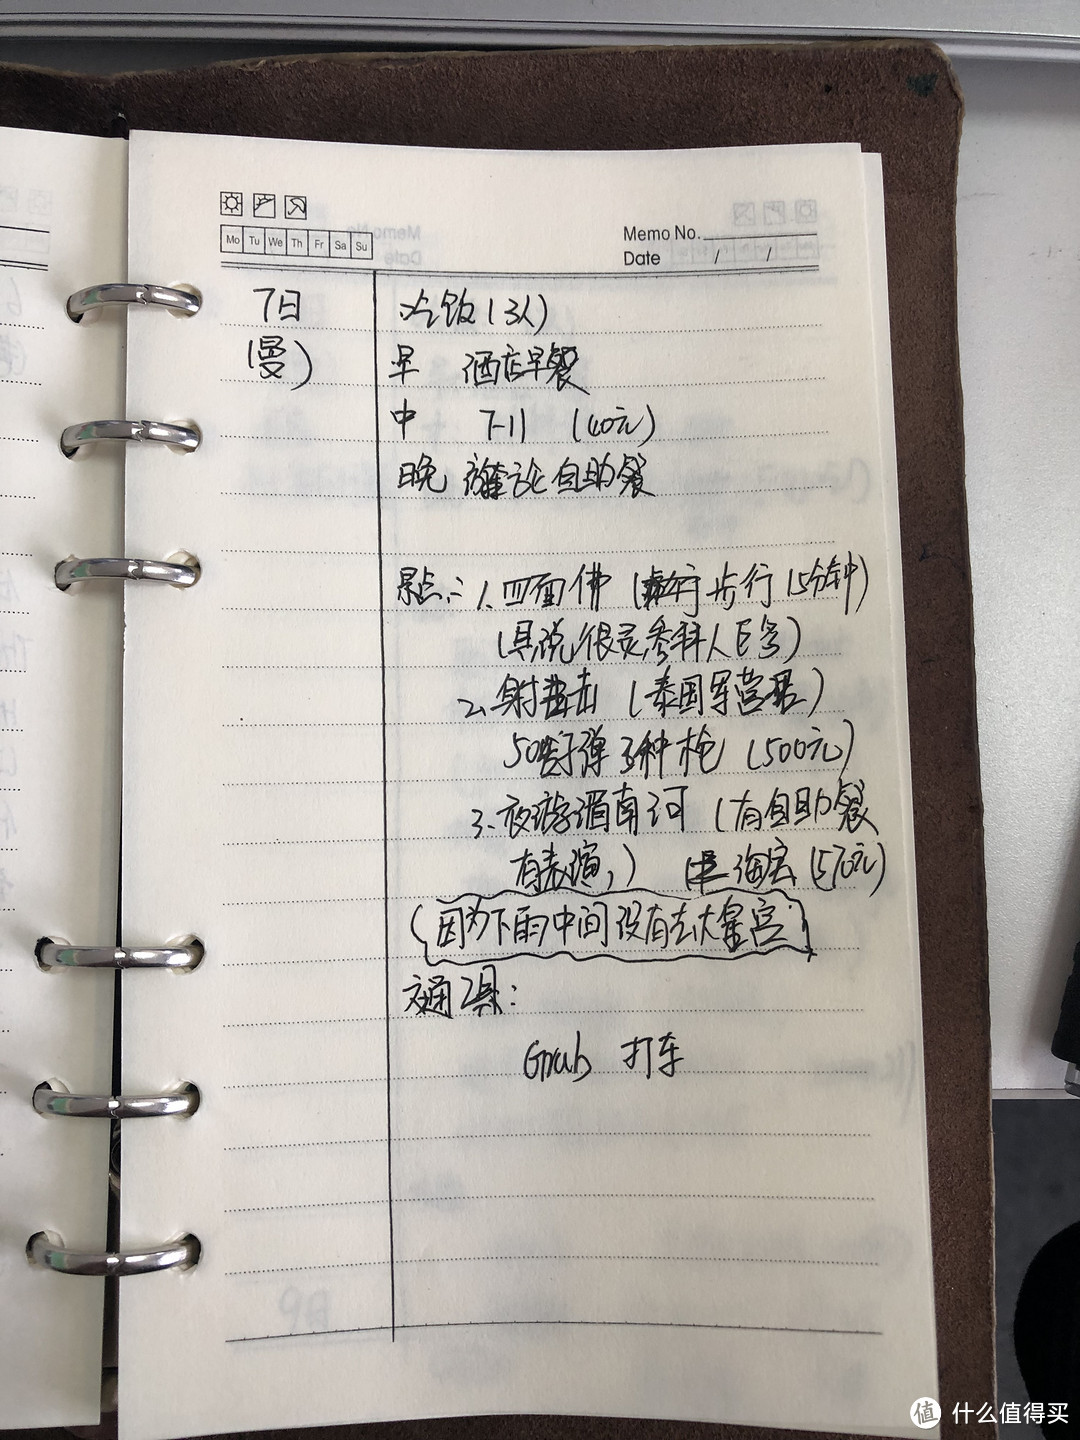 Mo Tu We Th Fr Sa Su
Memo No.
Date / /
7日
(曼)
吃饭(3人)
早 酒店早餐
中 7-11 (40元)
晚 自助餐
景点:1、四面佛 (步行15分钟)
(具说很灵
2、射击 (泰国军营里)
50发子弹 3种枪 (500元)
3、夜游湄南河 (有自助餐
有表演,) 淘宝(570元)
(因为下雨中间没有去大皇宫)
交通工具:
Grab 打车
9日
值 什么值得买